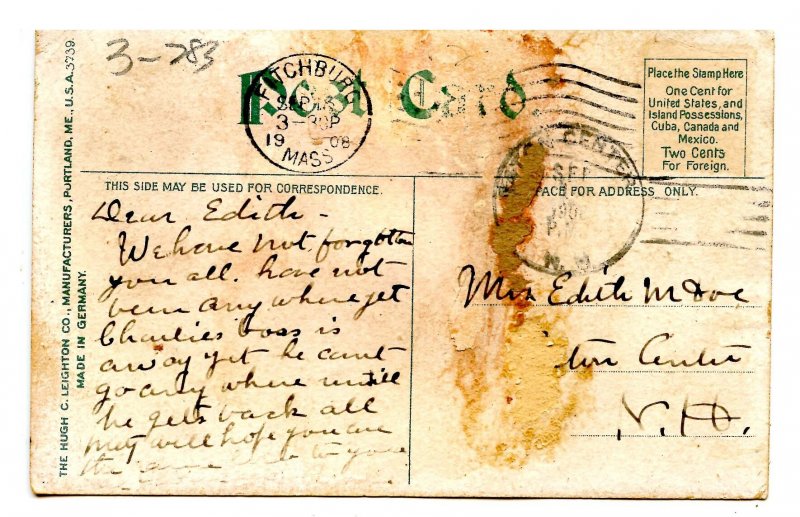 3-783
Post Card
FITCHBURG
SEP 16
3-30P
1908
MASS.
Place the Stamp Here
One Cent for
United States, and
Island Possessions,
Cuba, Canada and
Mexico.
Two Cents
For Foreign.
N CENTER
SEP
190
P.M.
N.H.
THE HUGH C. LEIGHTON CO., MANUFACTURERS, PORTLAND, ME., U.S.A. 3739.
MADE IN GERMANY.
THIS SIDE MAY BE USED FOR CORRESPONDENCE.
ACE FOR ADDRESS ONLY.
Dear Edith -
We have not forgotten
you all. have not
been any where yet
Charlies boss is
away yet he cant
go any where untill
he gets back all
well hope you are
the same to you
Miss Edith
ton Center
N.H.